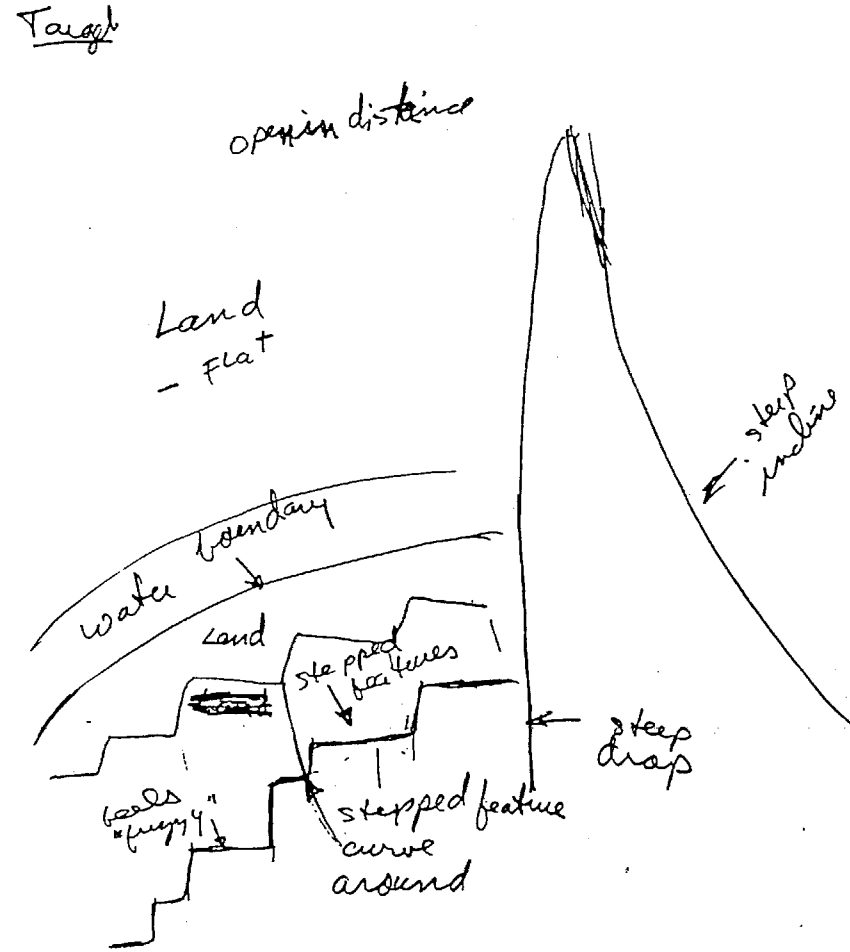 Target
open in distance
Land
- Flat
steep
incline
water boundary
Land
stepped
features
steep
drop
feels
"fuzzy"
stepped feature
curve
around